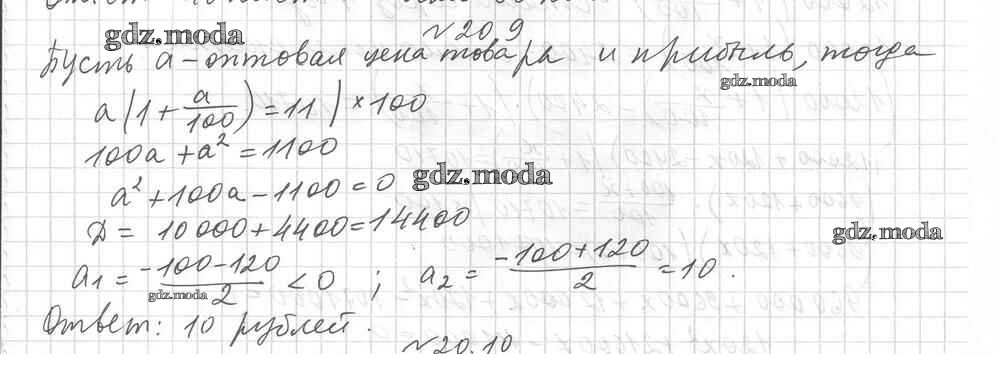 № 20.9
gdz.moda
Пусть a – оптовая цена товара и прибыль, тогда
gdz.moda
a(1 + a/100) = 11 | × 100
100a + a² = 1100
gdz.moda
a² + 100a - 1100 = 0
D = 10000 + 4400 = 14400
gdz.moda
a₁ = (-100 - 120)/2 < 0 ; a₂ = (-100 + 120)/2 = 10.
gdz.moda
Ответ: 10 рублей.
№ 20.10